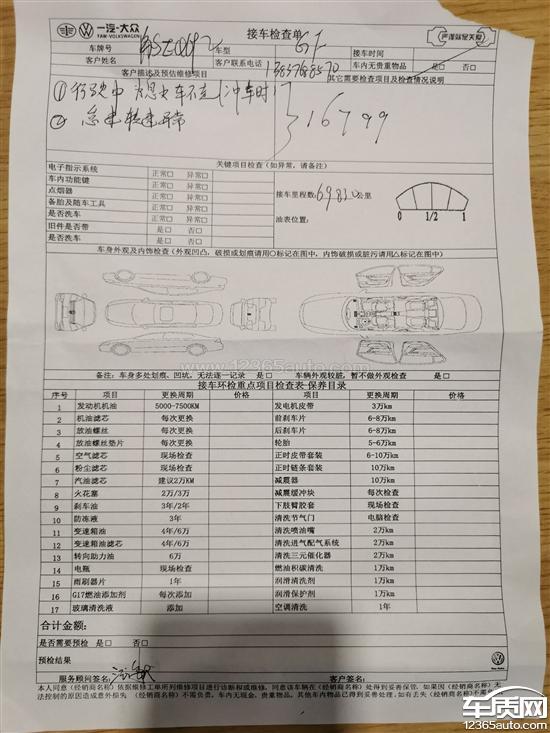 一汽-大众
FAW-VOLKSWAGEN
接车检查单
严谨就是关爱
车牌号 车型 接车时间
客户姓名 客户联系电话 车内无贵重物品 是□ 否□
客户描述及预估维修项目 其它需要检查项目及检查情况说明
① 行驶中
② 怠速转速异常
16799
关键项目检查(如异常,请备注)
电子指示系统 正常□ 异常□
车内功能键 正常□ 异常□
点烟器 正常□ 异常□
备胎及随车工具 正常□ 异常□
是否洗车 正常□ 异常□
旧件是否带 是□ 否□
是否洗车 是□ 否□
接车里程数: 公里
油表位置:
0 1/2 1
车身外观及内饰检查(外观凹凸,破损或划痕请用○标记在图中,内饰破损或脏污请用△标记在图中)
www.12365auto.com
备注:车身多处划痕、凹坑,无法逐一记录 是□ 车辆外观较脏,暂不做外观检查 是□
接车环检重点项目检查表-保养目录
序号 项目 更换周期 价格 项目 更换周期 价格
1 发动机机油 5000-7500KM 发电机皮带 3万km
2 机油滤芯 每次更换 前刹车片 6-8万km
3 放油螺丝 每次更换 后刹车片 6-8万km
4 放油螺丝垫片 每次更换 轮胎 5-6万km
5 空气滤芯 现场检查 正时皮带套装 6-10万km
6 粉尘滤芯 现场检查 正时链条套装 10万km
7 汽油滤芯 建议2万KM 减震器 10万km
8 火花塞 2万/3万 减震缓冲块 每次检查
9 刹车油 3年/2年 下肢臂胶套 现场检查
10 防冻液 3年 清洗节气门 电脑检查
11 变速箱油 4年/6万 清洗喷油嘴 2万km
12 变速箱油滤芯 4年/6万 清洗进气配气系统 2万km
13 转向助力油 6万 清洗三元催化器 2万km
14 电瓶 现场检查 燃油积碳清洗 1万km
15 雨刷器片 1年 润滑清洗剂 1万km
16 G17燃油添加剂 每次添加 润滑保护剂 1万km
17 玻璃清洗液 添加 空调清洗 1年
合计金额:
是否需要预检 是□ 否□
预检结果
服务顾问签名: 客户签名:
本人同意(经销商名称)依据维修工单所列维修项目进行诊断和或维修,同意该车辆在(经销商名称)处得到妥善保管。如果因(经销商名称)无法
控制的原因造成意外损失(经销商名称)不需负责。车内无现金,贵重物品,其他车内物品已得到了妥善处理。如有丢失(经销商名称)不需
车质网
12365auto.com